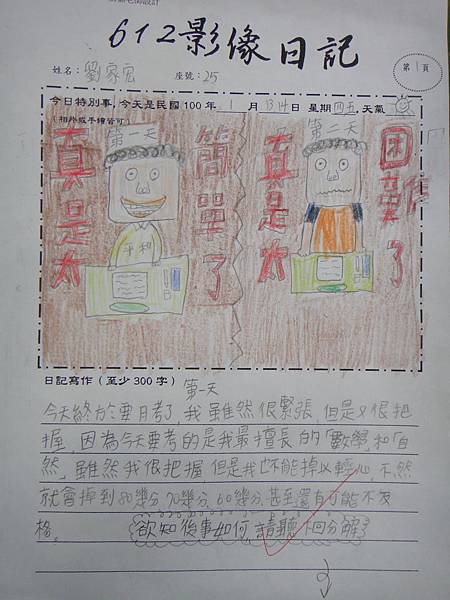 612影像日記
姓名：劉家宏 座號：25
第1頁
今日特別事，今天是民國100年 1 月 13 14 日 星期四五，天氣
（相片或手繪皆可）
第一天
真是太
簡單了
平和
第二天
真是太
困難了
日記寫作（至少300字）
第一天
今天終於要月考了，我雖然很緊張，但是又很把
握，因為今天要考的是我最擅長的「數學」和自
然，雖然我很把握，但是我也不能掉以輕心，不然
就會掉到80幾分、70幾分、60幾分，甚至還有可能不及
格。 欲知後事如何，請聽下回分解了